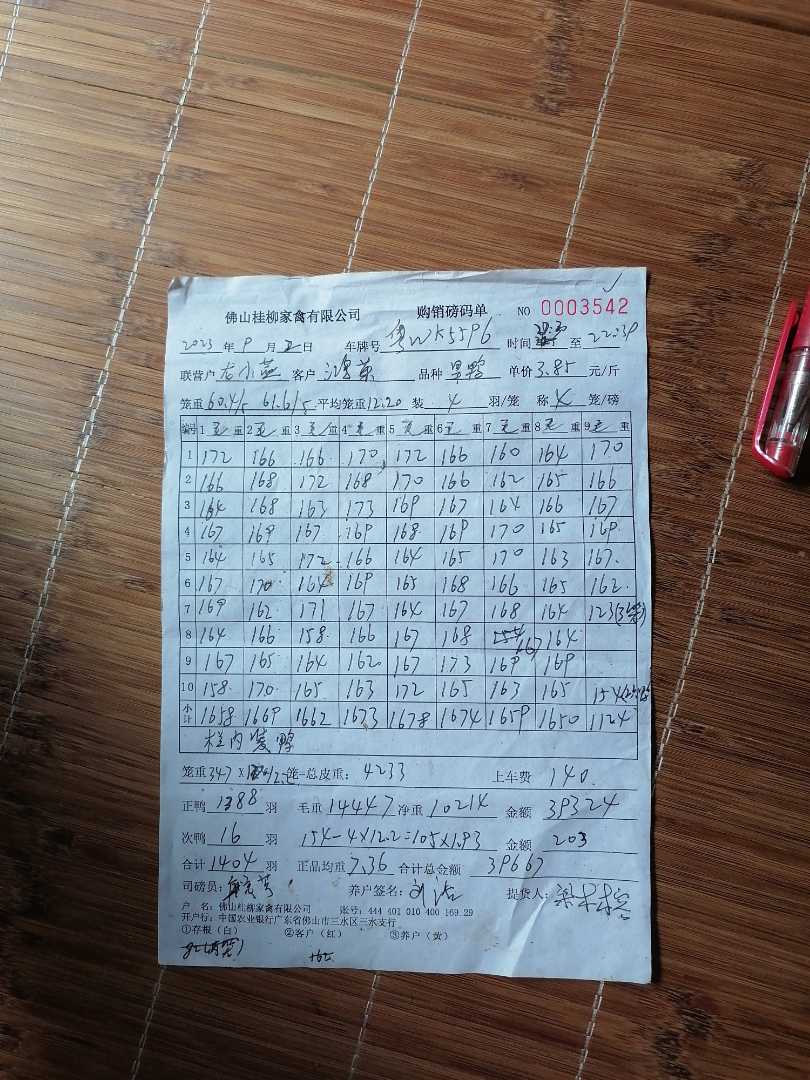 佛山桂柳家禽有限公司 购销磅码单 NO 0003542
2023 年 9 月 日 车牌号 粤WK5596 时间 至 22:30
联营户 客户 品种 单价 3.85 元/斤
笼重 60.4/5 61.6/5 平均笼重 12.20 装 4 羽/笼 称 笼/磅
编号 1 毛重 2 毛重 3 毛重 4 毛重 5 毛重 6 毛重 7 毛重 8 毛重 9 毛重
1 172 166 166 170 172 166 160 164 170
2 166 168 172 168 170 166 162 165 166
3 164 168 163 173 169 167 164 166 167
4 167 169 167 169 168 169 170 165 169
5 164 165 172 166 164 165 170 163 167
6 167 170 164 169 165 168 166 165 162
7 169 162 171 167 164 167 168 164 123(3笼)
8 164 166 158 166 167 168 167 164
9 167 165 164 162 167 173 169 169
10 158 170 165 163 172 165 163 165 154
小计 1658 1669 1662 1673 1678 1674 1659 1650 1124
栏内装鸭
笼重 347 × 笼=总皮重: 4233 上车费 140
正鸭 1388 羽 毛重 14447 净重 10214 金额 39324
次鸭 16 羽 154-4×12.2=105×1.93 金额 203
合计 1404 羽 正品均重 7.36 合计总金额 39667
司磅员: 养户签名: 提货人:
户 名: 佛山桂柳家禽有限公司 账号: 444 401 010 400 169 29
开户行: 中国农业银行广东省佛山市三水区三水支行
①存根(白) ②客户(红) ③养户(黄)